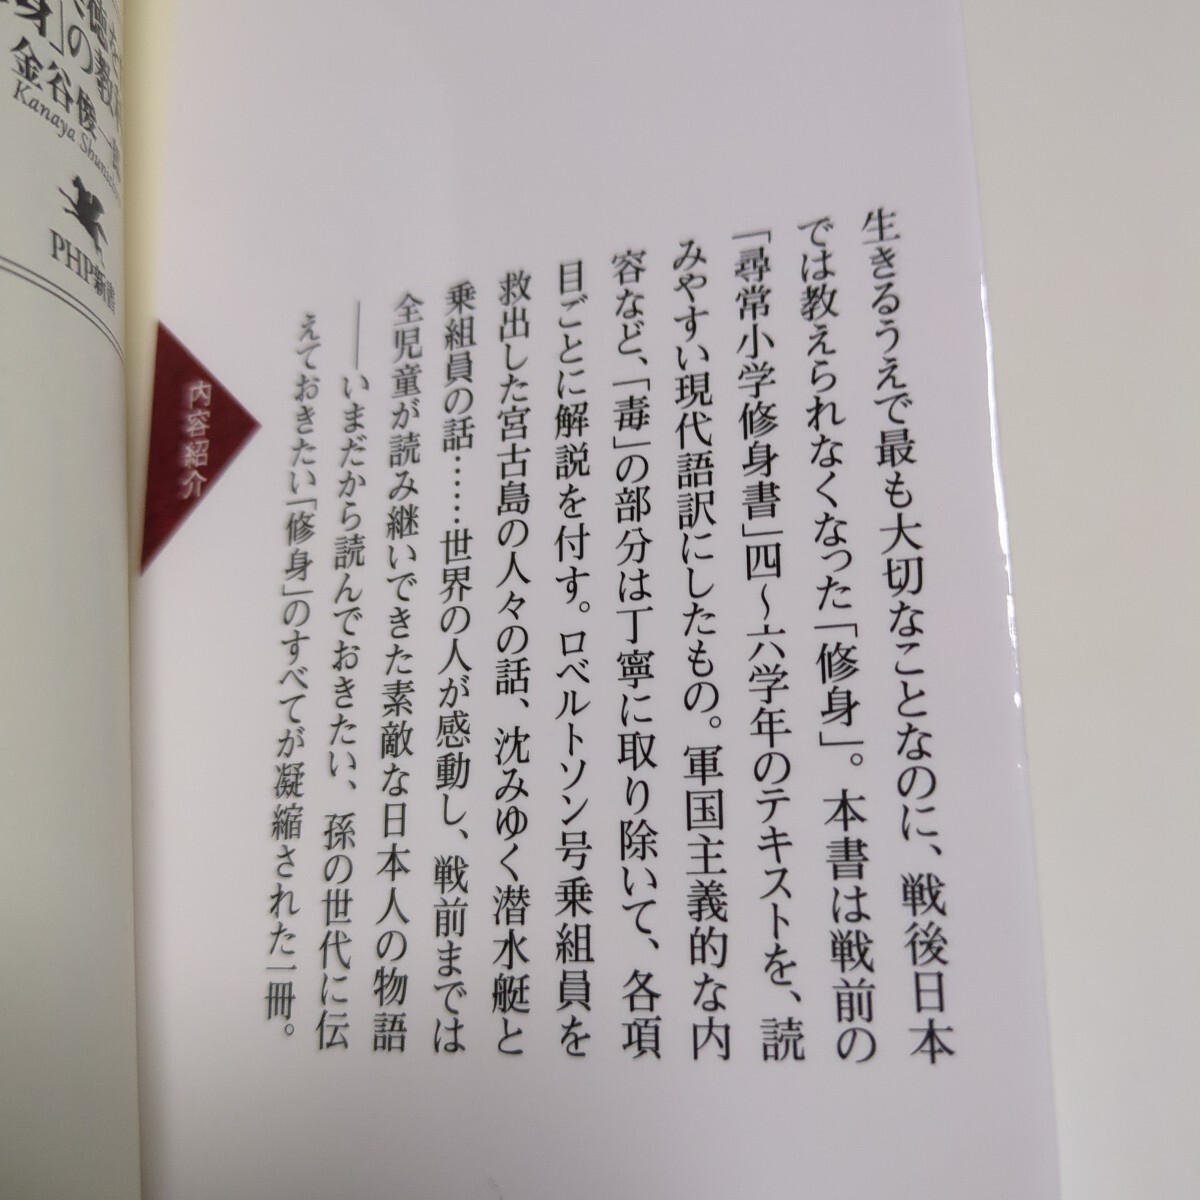 内容紹介
生きるうえで最も大切なことなのに、戦後日本
では教えられなくなった「修身」。本書は戦前の
「尋常小学修身書」四〜六学年のテキストを、読
みやすい現代語訳にしたもの。軍国主義的な内
容など、「毒」の部分は丁寧に取り除いて、各項
目ごとに解説を付す。ロベルトソン号乗組員を
救出した宮古島の人々の話、沈みゆく潜水艇と
乗組員の話……世界の人が感動し、戦前までは
全児童が読み継いできた素敵な日本人の物語
――いまだから読んでおきたい、孫の世代に伝
えておきたい「修身」のすべてが凝縮された一冊。
身」の教
金谷俊一
Kanaya
PHP新書